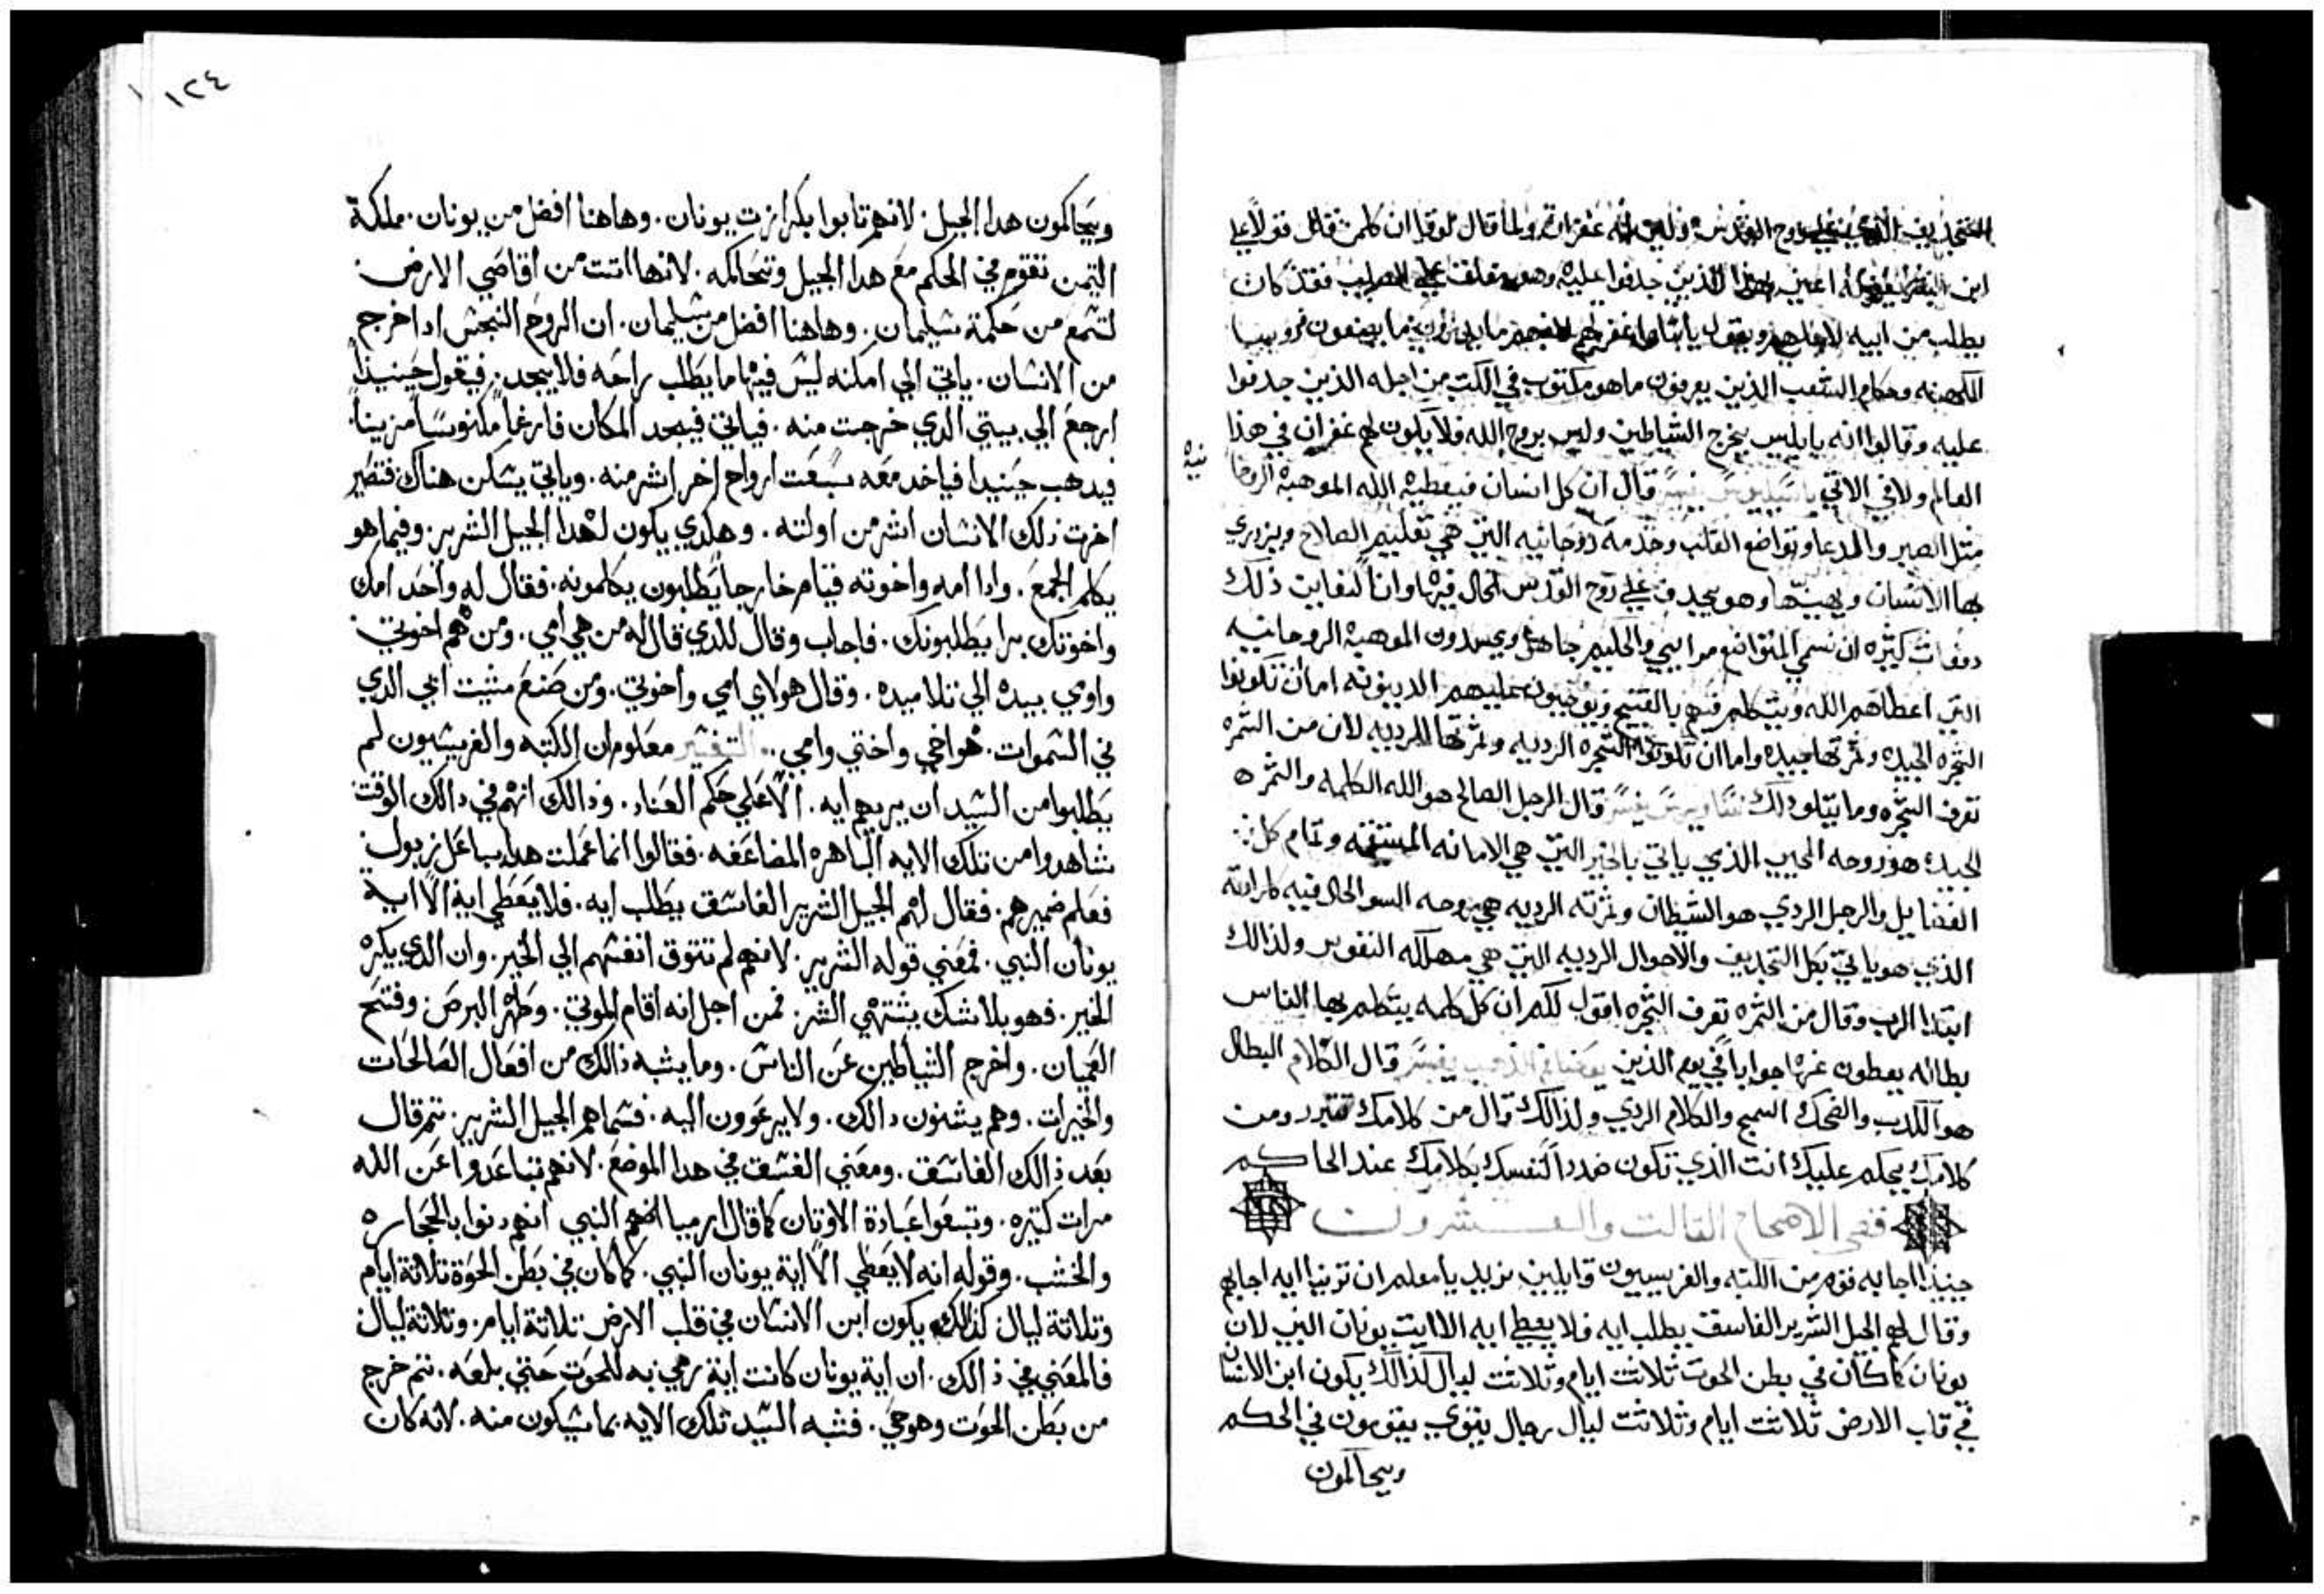 التجديف الذي على روح القدس وليس له غفران ولما قال لوقا ان كلمن قال قولاً على
ابن البشر يغفر له اعني بهذا الذين جدفوا عليه وهو معلقاً على الصليب فقد كان
يطلب من ابيه لاجلهم ويقول يا ابتاه اغفر لهم لانهم ما يدرون ما يصنعون فروسا
الكهنه وحكام الشعب الذين يعرفون ما هو مكتوب في الكتب من اجله الذين جدفوا
عليه وقالوا انه يابليس يخرج الشياطين وليس بروح الله فلا يكون لهم غفران في هذا
العالم ولا في الاتي باسيليوس يفسر قال ان كل انسان فيعطيه الله الموهبة الروحا
نيه
مثل الصبر والدعا وتواضع القلب وخدمه روحانيه التي هي تعليم الصلاح ويزدري
بها الانسان ويهينها وهو يجدف على روح القدس الحال فيها وانا لنعاين ذلك
دفعات كثيره ان نسمي المتواضع مرايي والحليم جاهل ويحسدون الموهبة الروحانيه
التي اعطاهم الله ويتكلم فيهم بالقبيح ويوجبون عليهم الدينونه اما ان تكونوا
الشجره الجيده وثمرتها جيده واما ان تكونوا الشجره الرديه وثمرتها الرديه لان من الثمره
تعرف الشجره وما يتلو ذلك ساويرس يفسر قال الرجل الصالح هو الله الكلمه والثمره
الجيده هو روحه المحيي الذي ياتي بالخير التي هي الامانه المستقيمه وتمام كل
الفضايل والرجل الردي هو الشيطان وثمرته الرديه هي روحه السو الحال فيه كمراته
الذي هو ياتي بكل التجديف والاحوال الرديه التي هي مهلكه النفوس ولذالك
ابتدا الرب وقال من الثمره تعرف الشجره اقول لكم ان كل كلمه يتكلم بها الناس
بطاله يعطون عنها جواباً في يوم الدين يوحنا فم الذهب يفسر قال الكلام البطال
هو الكدب والضحك السمج والكلام الردي ولذالك قال من كلامك تتبرر ومن
كلامك يحكم عليك انت الذي تكون ضدداً لنفسك بكلامك عند الحاكم
فصي الاصحاح التالت والعشرون
حينيذاً اجابه قوم من الكتبه والفريسيون قايلين نريد يا معلم ان ترينا ايه اجابهم
وقال لهم الجيل الشرير الفاسق يطلب ايه فلا يعطى ايه الا ايت يونان النبي لان
يونان كما كان في بطن الحوت ثلاثت ايام وثلاثت ليال كذالك يكون ابن الانسان
في قلب الارض ثلاثت ايام وثلاثت ليال رجال نينوى يقومون في الحكم
ويحاكمون
١٢٤
ويحاكمون هدا الجيل. لانهم تابوا بكرازت يونان. وهاهنا افضل من يونان. ملكة
التيمن تقوم في الحكم مع هدا الجيل وتحاكمه. لانها اتت من أقاصي الارض.
لتسمع من حكمة سليمان. وهاهنا افضل من سليمان. ان الروح النجس ادا خرج
من الانسان. ياتي الي امكنه ليس فيها ما يطلب راحه فلا يجد. فيقول حينيذاً
ارجع الي بيتي الدي خرجت منه. فياتي فيجد المكان فارغاً مكنوساً مزيناً.
فيدهب حينيدا فياخد معه سبعت ارواح اخر اشر منه. وياتي يسكن هناك فتصير
اخرت ذلك الانسان اشر من اولته. وهكدي يكون لهدا الجيل الشرير. وفيما هو
يكلم الجمع. وادا امه واخوته قيام خارجاً يطلبون يكلمونه. فقال له واحد امك
واخوتك برا يطلبونك. فاجاب وقال للدي قال له من هي امي. ومن هم اخوتي.
واوي بيده الي تلاميده. وقال هولاي امي واخوتي. ومن صنع مشيت ابي الدي
في السموات. هو اخي واختي وامي .. التفسير معلوم ان الكتبه والفريسيون لم
يطلبوا من السيد ان يريهم ايه. الا علي حكم العناد. وذالك انهم في دالك الوقت
شاهدوا من تلك الايه الباهره المضاعفه. فقالوا انما عملت هدا بباعلزبول
فعلم ضميرهم. فقال لهم الجيل الشرير الفاسق يطلب ايه. فلا يعطي اية الا اية
يونان النبي. فمعني قوله الشرير. لانهم لم تتوق انفسهم الي الخير. وان الدي يكره
الخير. فهو بلا شك يشتهي الشر. فمن اجل انه اقام الموتي. وطهر البرص. وفتح
العميان. واخرج الشياطين عن الناس. وما يشبه ذالك من افعال الصالحات
والخيرات. وهم يشنون دالك. ولا يرعوون اليه. فسماهم الجيل الشرير. تم قال
بعد ذالك الفاسق. ومعني الفسق في هدا الموضع. لانهم تباعدوا عن الله
مرات كتيره. وتبعوا عبادة الاوتان كما قال ارميا النبي انهم زنوا بالحجاره
والخشب. وقوله انه لا يعطي الا اية يونان النبي. كما كان في بطن الحوة تلاتة ايام
وتلاتة ليال كذالك يكون ابن الانسان في قلب الارض تلاتة ايام. وتلاتة ليال
فالمعني في ذالك. ان اية يونان كانت اية رمي به للحوت حتي بلعه. تم خرج
من بطن الحوت وهو حي. فشبه السيد تلك الايه بما سيكون منه. لانه كان